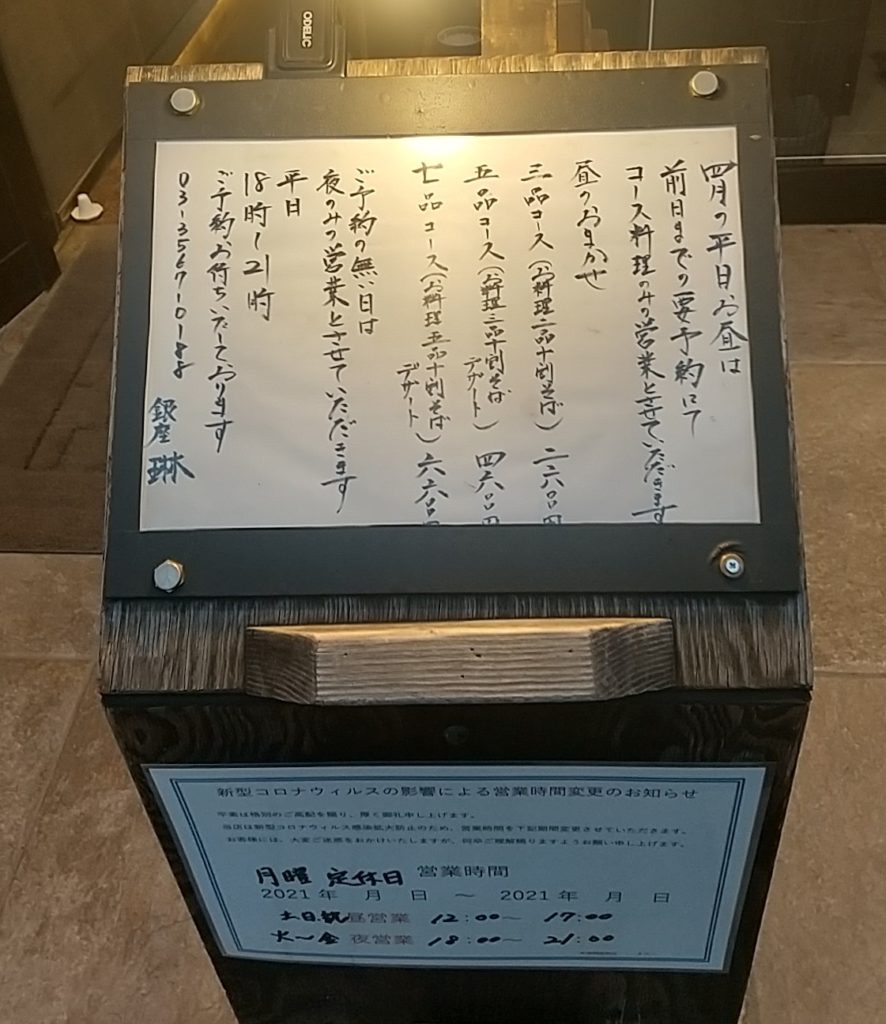 ODELIC
四月の平日お昼は
前日までの要予約にて
コース料理のみの営業とさせていただきます
昼のおまかせ
三品コース(お料理二品十割そば) 二六〇〇円
五品コース(お料理三品十割そば デザート) 四六〇〇円
七品コース(お料理五品十割そば デザート) 六六〇〇円
ご予約の無い日は
夜のみの営業とさせていただきます
平日
18時〜21時
ご予約お待ちいたしております
03-3567-0188
銀座 琳
新型コロナウィルスの影響による営業時間変更のお知らせ
平素は格別のご高配を賜り、厚く御礼申し上げます。
当店は新型コロナウィルス感染拡大防止のため、営業時間を下記期間変更させていただきます。
お客様には、大変ご迷惑をおかけいたしますが、何卒ご理解賜りますようお願い申し上げます。
月曜 定休日 営業時間
2021年 月 日 〜 2021年 月 日
土日.祝昼営業 12:00〜 17:00
火〜金 夜営業 18:00〜 21:00